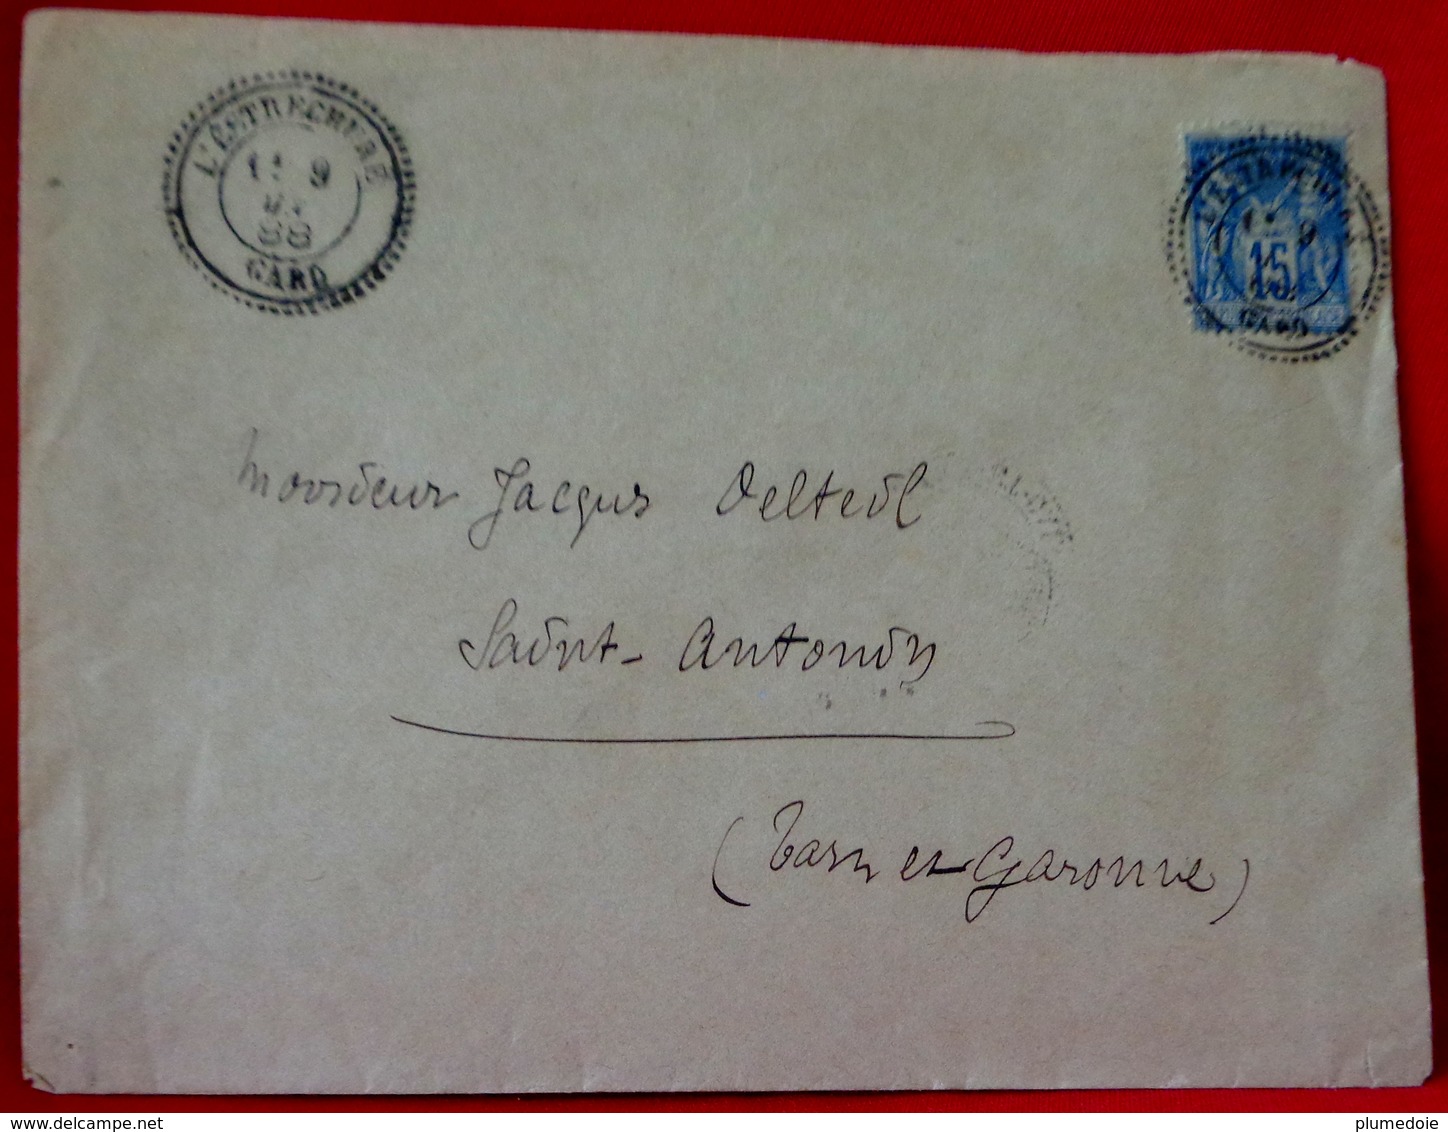 L'ESTRECHURE
9
88
GARD
L'ESTRECHURE
9
15
GARD
Monsieur Jacques Delteil
Saint-Antonin
(Tarn et Garonne)
plumedoie